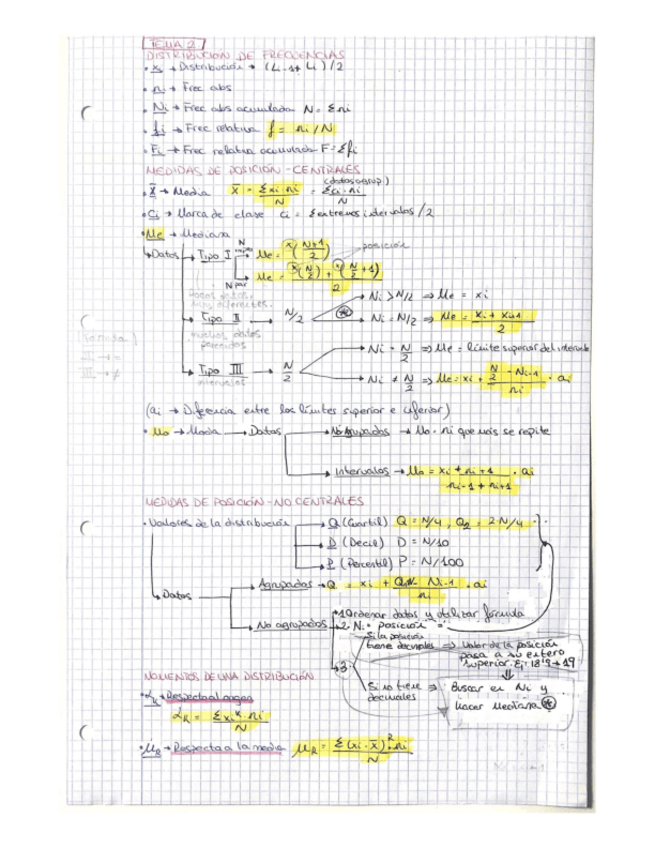 TEMA 2
DISTRIBUCIÓN DE FRECUENCIAS
• xi → Distribución → (Li-1 + Li) / 2
• ni → Frec abs
• Ni → Frec abs acumulada N = Σni
• fi → Frec relativa f = ni / N
• Fi → Frec relativa acumulada F = Σfi
MEDIDAS DE POSICIÓN - CENTRALES
• X̄ → Media X̄ = Σxi·ni / N = Σci·ni / N (datos agrup.)
• Ci → Marca de clase ci = Σ extremos intervalos / 2
• Me → Mediana
↳ Datos
Tipo I
N impar Me = x(N+1 / 2) → posición
N par Me = x(N/2) + x(N/2 + 1) / 2
Tipo II → N/2
Ni > N/2 ⇒ Me = xi
Ni = N/2 ⇒ Me = xi + xi+1 / 2
Tipo III → N/2
intervalos
Ni = N/2 ⇒ Me = límite superior del intervalo
Ni ≠ N/2 ⇒ Me = xi + (N/2 - Ni-1) / ni · ai
(ai → Diferencia entre los límites superior e inferior)
• Mo → Moda → Datos
No agrupados → Mo = ni que más se repite
Intervalos → Mo = xi + ni+1 / ni-1 + ni+1 · ai
MEDIDAS DE POSICIÓN - NO CENTRALES
• Valores de la distribución
Q (Cuartil) Q = N/4, Q2 = 2·N/4
D (Decil) D = N/10
P (Percentil) P = N/100
Datos
Agrupados → Q = xi + - Ni-1 / ni · ai
No agrupados
1 Ordenar datos y utilizar fórmula
2 Ni = posición =
3
Si la posición tiene decimales ⇒ Valor de la posición
pasa a su entero
superior. Ej: 18'9 → 19
Si no tiene decimales ⇒ Buscar en Ni y
hacer Mediana ⊛
MOMENTOS DE UNA DISTRIBUCIÓN
• αR → Respecto al origen
αR = Σxiᴷ·ni / N
• μR → Respecto a la media μR = Σ(xi - x̄)ᴿ·ni / N